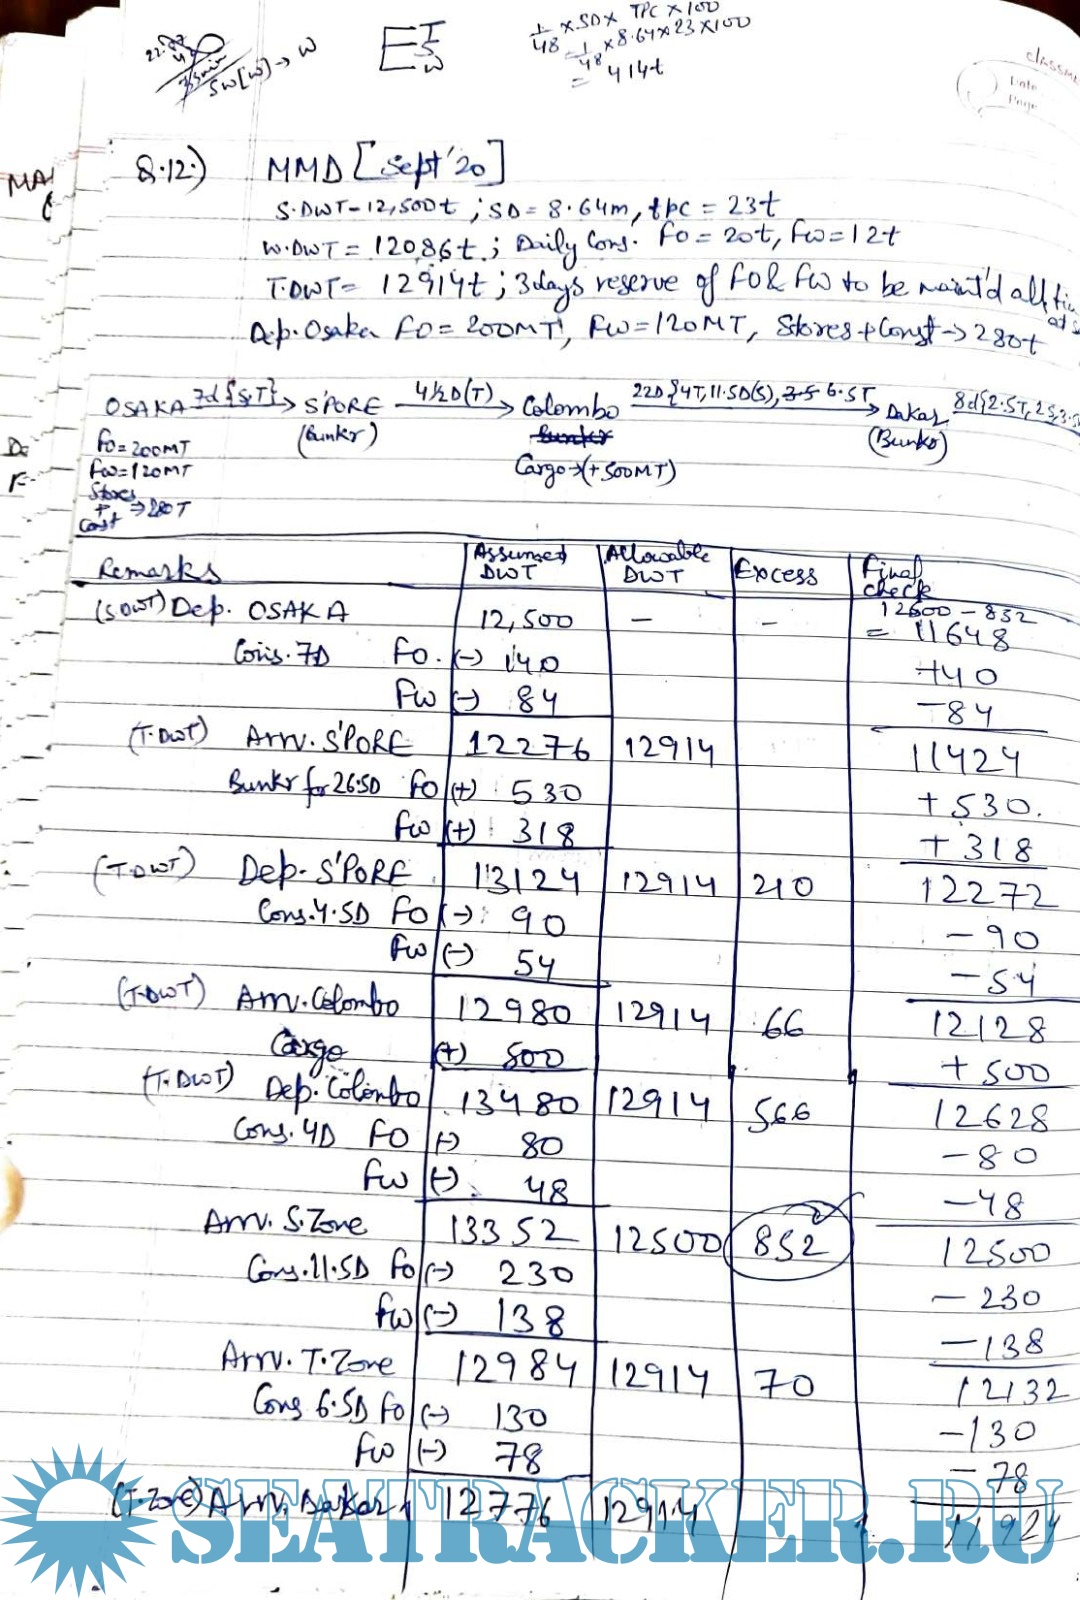 1/48 × SD × TPC × 100
= 1/48 × 8.64 × 23 × 100
= 414t
SW[W] → W
E T S W
classm
Date
Page
Q.12.) MMD [Sept'20]
S.DWT - 12,500t ; SD = 8.64m, tpc = 23t
W.DWT = 12086t ; Daily Cons. FO = 20t, FW = 12t
T.DWT = 12914t ; 3days reserve of FO & FW to be maint'd all ti
at s
Dep. Osaka FO = 200MT, FW = 120MT, Stores + Const → 280t
OSAKA 7d{S,T} → S'PORE 4½D(T) → Colombo 22D{4T, 11.5D(S), 3.5 6.5T → Dakar 8d{2.5T, 2S, 3.5
(Bunkr) Bunker (Bunkr)
FO = 200MT
FW = 120MT Cargo → (+500MT)
Stores
+ ⇒ 280T
Const
Remarks Assumed DWT Allowable DWT Excess Final check
(SDWT) Dep. OSAKA 12,500 - - 12500 - 852
= 11648
Cons. 7D FO. (-) 140 -140
FW (-) 84 -84
(T.DWT) Arrv. S'PORE 12276 12914 11424
Bunkr for 26.5D FO (+) 530 +530.
FW (+) 318 +318
(T.DWT) Dep. S'PORE 13124 12914 210 12272
Cons. 4.5D FO (-) 90 -90
FW (-) 54 -54
(T.DWT) Arrv. Colombo 12980 12914 66 12128
Cargo (+) 500 +500
(T.DWT) Dep. Colombo 13480 12914 566 12628
Cons. 4D FO (-) 80 -80
FW (-) 48 -48
Arrv. S. Zone 13352 12500 852 12500
Cons. 11.5D FO (-) 230 -230
FW (-) 138 -138
Arrv. T. Zone 12984 12914 70 12132
Cons 6.5D FO (-) 130 -130
FW (-) 78 -78
(T-Zone) Arrv. Dakar 12776 12914 11924
SEATRACKER.RU